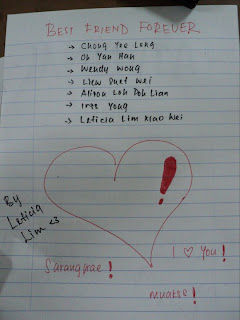 BEST FRIEND FOREVER
→ Chong Yee Leng
→ Oh Yan Han
→ Wendy Wong
→ Liew Suet Wei
→ Alison Loh Poh Lian
→ Inge Yong
→ Leticia Lim Xiao Wei
!
By
Leticia
Lim <3
I ♡ You!
Saranghae!
muatse!